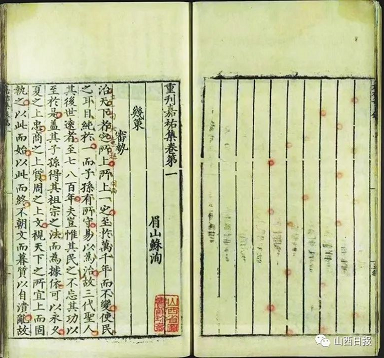 重刊嘉祐集卷第一
眉山蘇洵
幾策
審勢
治天下者定所上所上一定至於萬千年而不變使民
之耳目純於一而子孫有所守易以為治故三代聖人
其後世遠者至七八百年夫豈惟其民之不忘其功以
至於是蓋其子孫得其祖宗之法而為據依可以永久
夏之上忠商之上質周之上文視天下之所宜上而固
執之以此而始以此而終不朝文而暮質以自潰亂故
山西日报